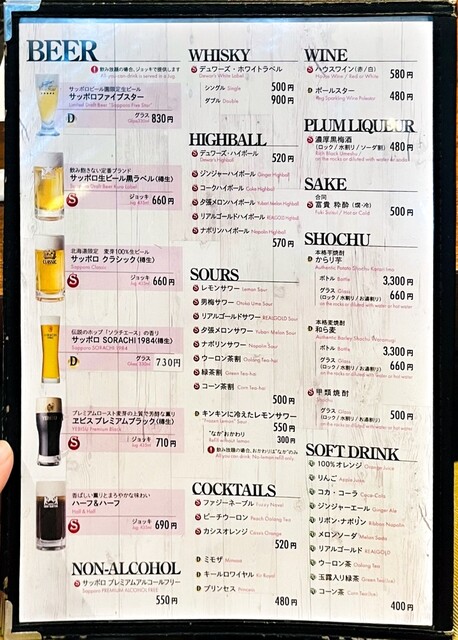 BEER
飲み放題の場合、ジョッキで提供します
All-you-can-drink is served in a Jug.
サッポロビール園限定生ビール
サッポロファイブスター
Limited Draft Beer "Sapporo Five Star"
D グラス 830円
飲み飽きない定番ブランド
サッポロ生ビール黒ラベル(樽生)
Sapporo Draft Beer Kuro Label
S ジョッキ 660円
北海道限定 麦芽100%生ビール
サッポロ クラシック(樽生)
Sapporo Classic
S ジョッキ 660円
伝説のホップ「ソラチエース」の香り
サッポロ SORACHI 1984(樽生)
Sapporo SORACHI 1984
D グラス 730円
プレミアムロースト麦芽の上質で芳醇な薫り
ヱビス プレミアムブラック(樽生)
YEBISU Premium Black
S ジョッキ 710円
香ばしい薫りとまろやかな味わい
ハーフ&ハーフ
Half & Half
S ジョッキ 690円
NON-ALCOHOL
S サッポロ プレミアムアルコールフリー
Sapporo PREMIUM ALCOHOL FREE
550円
WHISKY
S デュワーズ・ホワイトラベル
Dewar's White Label
シングル Single 500円
ダブル Double 900円
HIGHBALL
S デュワーズ・ハイボール
Dewar's Highball
520円
S ジンジャーハイボール Ginger Highball
S コークハイボール Coke Highball
S 夕張メロンハイボール Yubari Melon Highball
S リアルゴールドハイボール REALGOLD Highball
S ナポリンハイボール Napolin Highball
570円
SOURS
S レモンサワー Lemon Sour
S 男梅サワー Otoko Ume Sour
S リアルゴールドサワー REALGOLD Sour
S 夕張メロンサワー Yubari Melon Sour
S ナポリンサワー Napolin Sour
S ウーロン茶割 Oolong Tea-hai
S 緑茶割 Green Tea-hai
S コーン茶割 Corn Tea-hai
500円
D キンキンに冷えたレモンサワー
"Frozen Lemon" Sour
550円
"なか"おかわり
300円
飲み放題の場合、おかわりは"なか"のみ
COCKTAILS
S ファジーネーブル Fuzzy Navel
S ピーチウーロン Peach Oolong Tea
S カシスオレンジ Cassis Orange
520円
D ミモザ Mimosa
D キールロワイヤル Kir Royal
D プリンセス Princess
480円
WINE
S ハウスワイン(赤/白)
House Wine / Red or White
580円
D ポールスター
Reg. Sparkling Wine Polestar
480円
PLUM LIQUEUR
S 濃厚梅酒
(ロック/水割り/ソーダ割)
Rich Black Umeshu
on the rocks or diluted with water or soda
480円
SAKE
合同
S 富貴 粋酔 (燗・冷)
Fuki Suisui / Hot or Cold
500円
SHOCHU
本格芋焼酎
D からり芋
Authentic Potato Shochu Karari imo
ボトル Bottle 3,300円
グラス Glass
(ロック/水割り/お湯割り)
on the rocks or diluted with water or hot water
660円
本格麦焼酎
D 和ら麦
Authentic Barley Shochu Yawaramugi
ボトル Bottle 3,300円
グラス Glass
(ロック/水割り/お湯割り)
on the rocks or diluted with water or hot water
660円
S 甲類焼酎
Shochu
グラス Glass
(ロック/水割り/お湯割り)
on the rocks or diluted with water or hot water
500円
SOFT DRINK
100%オレンジ Orange Juice
りんご Apple Juice
コカ・コーラ Coca-Cola
ジンジャーエール Ginger Ale
リボン・ナポリン Ribbon Napolin
メロンソーダ Melon Soda
リアルゴールド REALGOLD
ウーロン茶 Oolong Tea
玉露入り緑茶 Green Tea (Ice)
コーン茶 Corn Tea (Ice)
400円